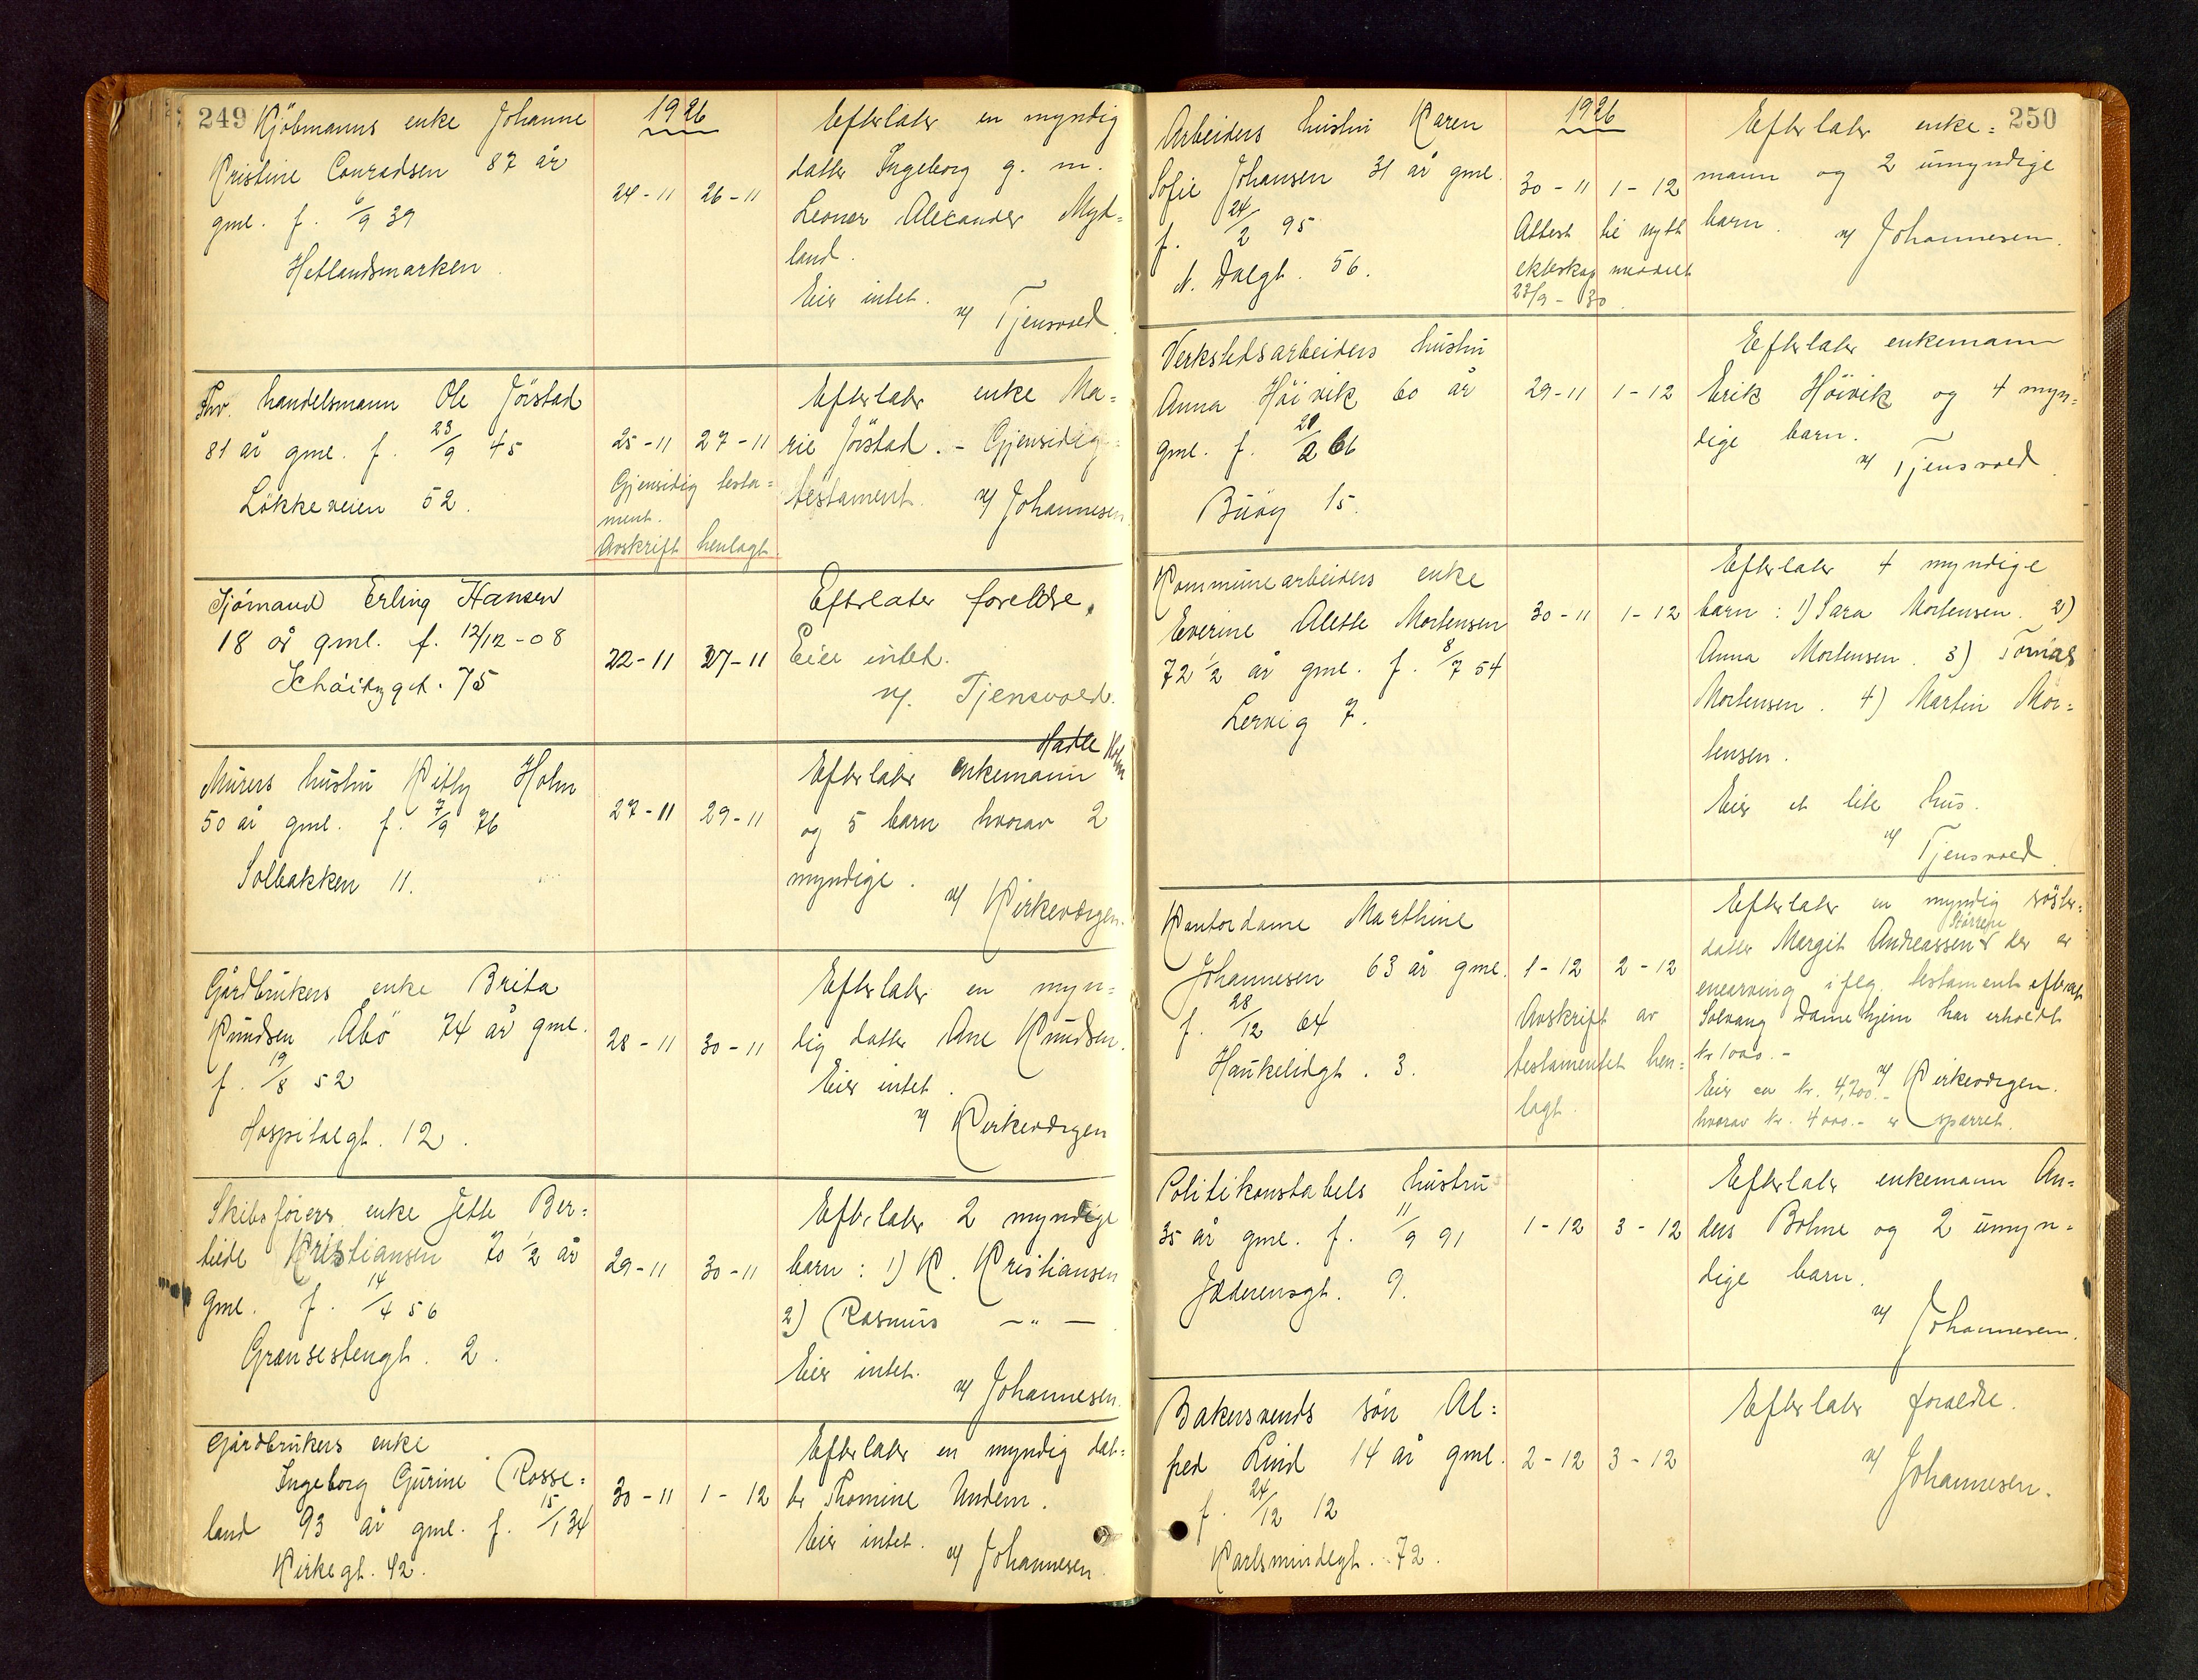 249
Kjöbmanns enke Johanne
Kristine Conradsen 87 år
gml. f. 6/9 39
Hetlandsmarken
1926
24-11 26-11
Efterlater en myndig
datter Ingeborg g. m.
Leonar Alexander Myd=
land.
Eier intet.
v/ Tjensvold.
Fhv. handelsmann Ole Jörstad
81 år gml. f. 23/9 45
Lökkeveien 52.
25-11 27-11
Gjensidig testa=
ment.
Avskrift henlagt.
Efterlater enke Ma=
rie Jörstad. - Gjensidig
testament. v/ Johannesen
Sjömand Erling Hansen
18 år gml. f. 12/12-08
75
22-11 27-11
Efterlater foreldre.
Eier intet.
v/. Tjensvold.
Murers hustru Kitty Holm
50 år gml. f. 7/9 76
Solbakken 11.
27-11 29-11
Holm
Efterlater enkemann
og 5 barn hvorav 2
myndige.
v/ Kirkevergen.
Gårdbrukers enke Brita
Knudsen Åbö 74 år gml.
f. 19/8 52
Hospitalgt. 12.
28-11 30-11
Efterlater en myn=
dig datter Ane Knudsen.
Eier intet.
v/ Kirkevergen
Skibsförers enke Jette Ber=
Kristiansen 70 1/2 år
gml. f. 14/4 56
Grensestengt. 2.
29-11 30-11
Efterlater 2 myndige
barn: 1) K. Kristiansen
2) Rasmus - " -
Eier intet.
v/ Johannesen.
Gårdbrukers enke
Ingeborg Gurine Rosse=
land 93 år gml. f. 15/1 34
Kirkegt. 42.
30-11 1-12
Efterlater en myndig dat=
ter Thomine Undem.
Eier intet.
v/ Johannesen.
250
Arbeiders hustru Karen
Sofie Johansen 31 år gml.
f. 24/2 95
N. Dalgt. 56.
1926
30-11 1-12
Attest til nytt
ekteskap meddelt
23/9-30.
Efterlater enke=
mann og 2 umyndige
barn.
v/ Johannesen.
Verkstedsarbeiders hustru
Anna Höivik 60 år
gml. f. 20/2 66
Buöy 15.
29-11 1-12
Efterlater enkemann
Erik Höivik og 4 myn=
dige barn.
v/ Tjensvold.
Kommunearbeiders enke
Everine Alette Mortensen
72 1/2 år gml. f. 8/7 54
Lervig 7.
30-11 1-12
Efterlater 4 myndige
barn: 1) Sara Mortensen. 2)
Anna Mortensen. 3) Tomas
Mortensen. 4) Martin Mor=
tensen.
Eier et lite hus.
v/ Tjensvold.
Kontordame Marthine
Johannesen 63 år gml.
f. 28/12 64
Haukelidgt. 3.
1-12 2-12
Avskrift av
testamentet hen=
lagt.
Efterlater en myndig söster=
datter Margit Andreassen der er
enearving iflg. testament efterat
Solvang Damehjem har erholdt
kr 1000.-
Eier ca kr. 4,700.- v/ Kirkevergen.
hvorav kr. 4000.- er sparret.
Politikonstabels hustru
35 år gml. f. 11/9 91
Jæderensgt. 9.
1-12 3-12
Efterlater enkemann An=
ders Bohne og 2 umyn=
dige barn.
v/ Johannesen.
Bakersvends sön Al=
fred Lind 14 år gml.
f. 24/12 12
Karlsmindegt. 72.
2-12 3-12
Efterlater foreldre.
v/ Johannesen.